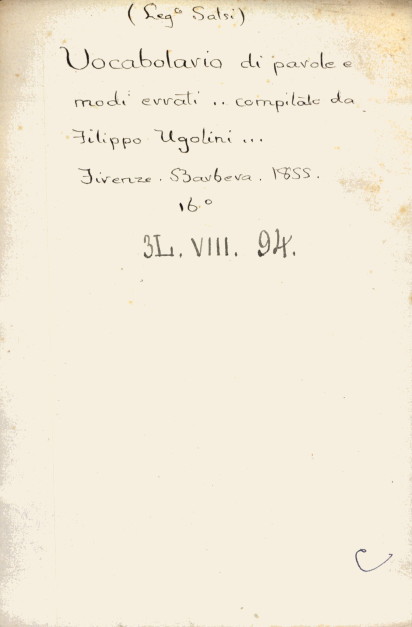 (Leg° Salsi)
Vocabolario di parole e
modi errati .. compilato da
Filippo Ugolini ...
Firenze. Barbera. 1855.
16.°
3L. VIII. 94.